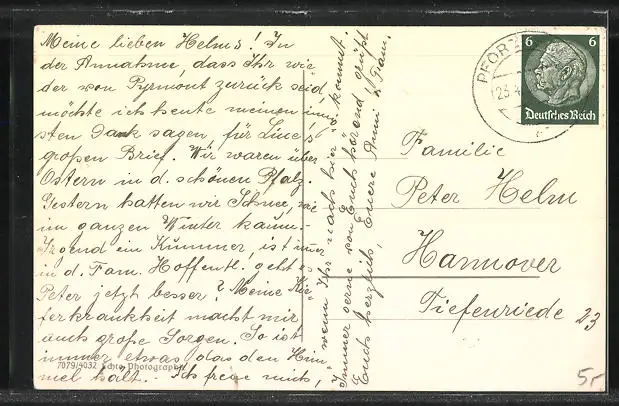 Meine lieben Helms! In
der Annahme, dass Ihr wie
der von Pyrmont zurück seid
möchte ich heute meinen in
sten Dank sagen, für Lines
großen Brief. Wir waren über
Ostern in d. schönen Pfalz.
Gestern hatten wir Schnee, wie
im ganzen Winter kaum.-
Irgend ein Kummer, ist imer
in d. Fam. Hoffentl. geht es
Peter jetzt besser? Meine Kie
ferkrankheit macht mir
auch große Sorgen. So ist
immer etwas das den Him
mel hält. Ich freue mich,
wenn Ihr nach hier kommt.
Immer gerne von Euch hörend, grüßt
Euch herzlich, Eure Anni & Fam.
PFORZ
23.4
6 6
Deutsches Reich
Familie
Peter Helm
Hannover
Tiefenriede 23
7079/4032 Echte Photographie
5,-